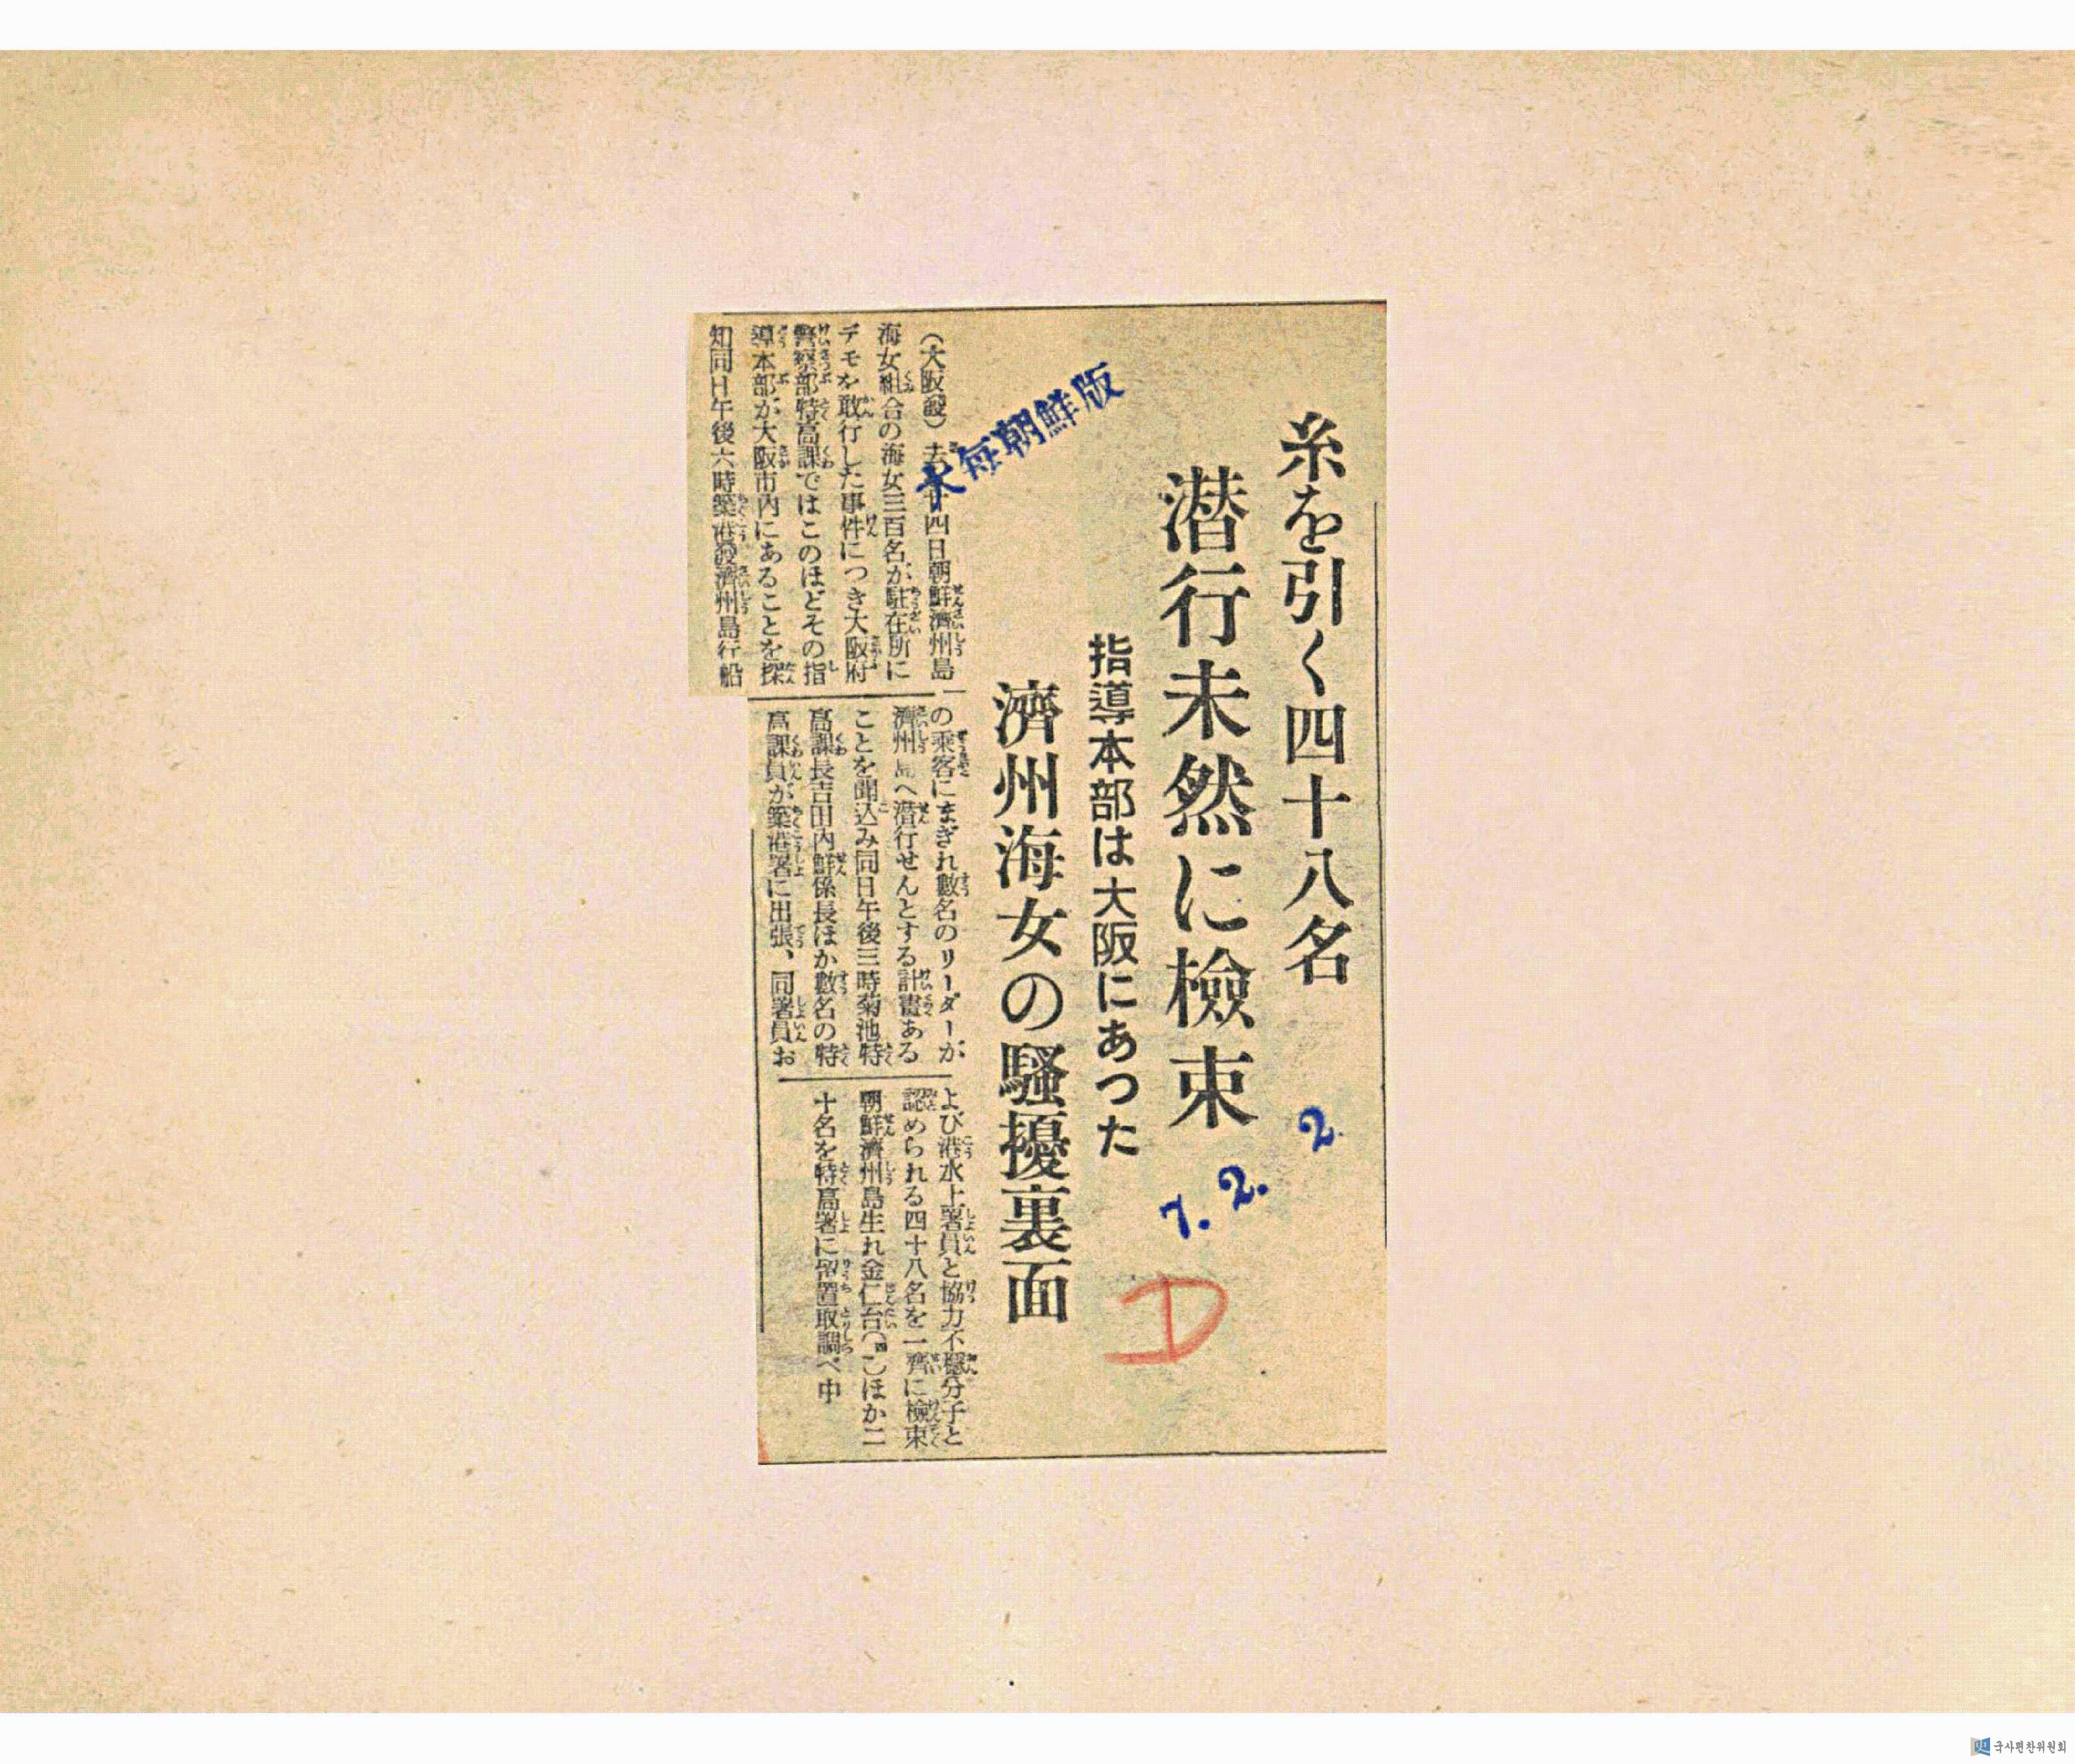 糸を引く四十八名
潜行未然に檢束
指導本部は大阪にあつた
濟州海女の騷擾裏面
大每朝鮮版
7. 2. 2.
D
（大阪發）去二十四日朝鮮濟州島
海女組合の海女三百名が駐在所に
デモを敢行した事件につき大阪府
警察部特高課ではこのほどその指
導本部が大阪市内にあることを探
知同日午後六時築港發濟州島行船
の乘客にまぎれ數名のリーダーが
濟州島へ潜行せんとする計畫ある
ことを聞込み同日午後三時菊池特
高課長吉田内鮮係長ほか數名の特
高課員が築港署に出張、同署員お
よび港水上署員と協力不穩分子と
認められる四十八名を一齊に檢束
朝鮮濟州島生れ金仁台（四一）ほか二
十名を特高署に留置取調べ中
국사편찬위원회